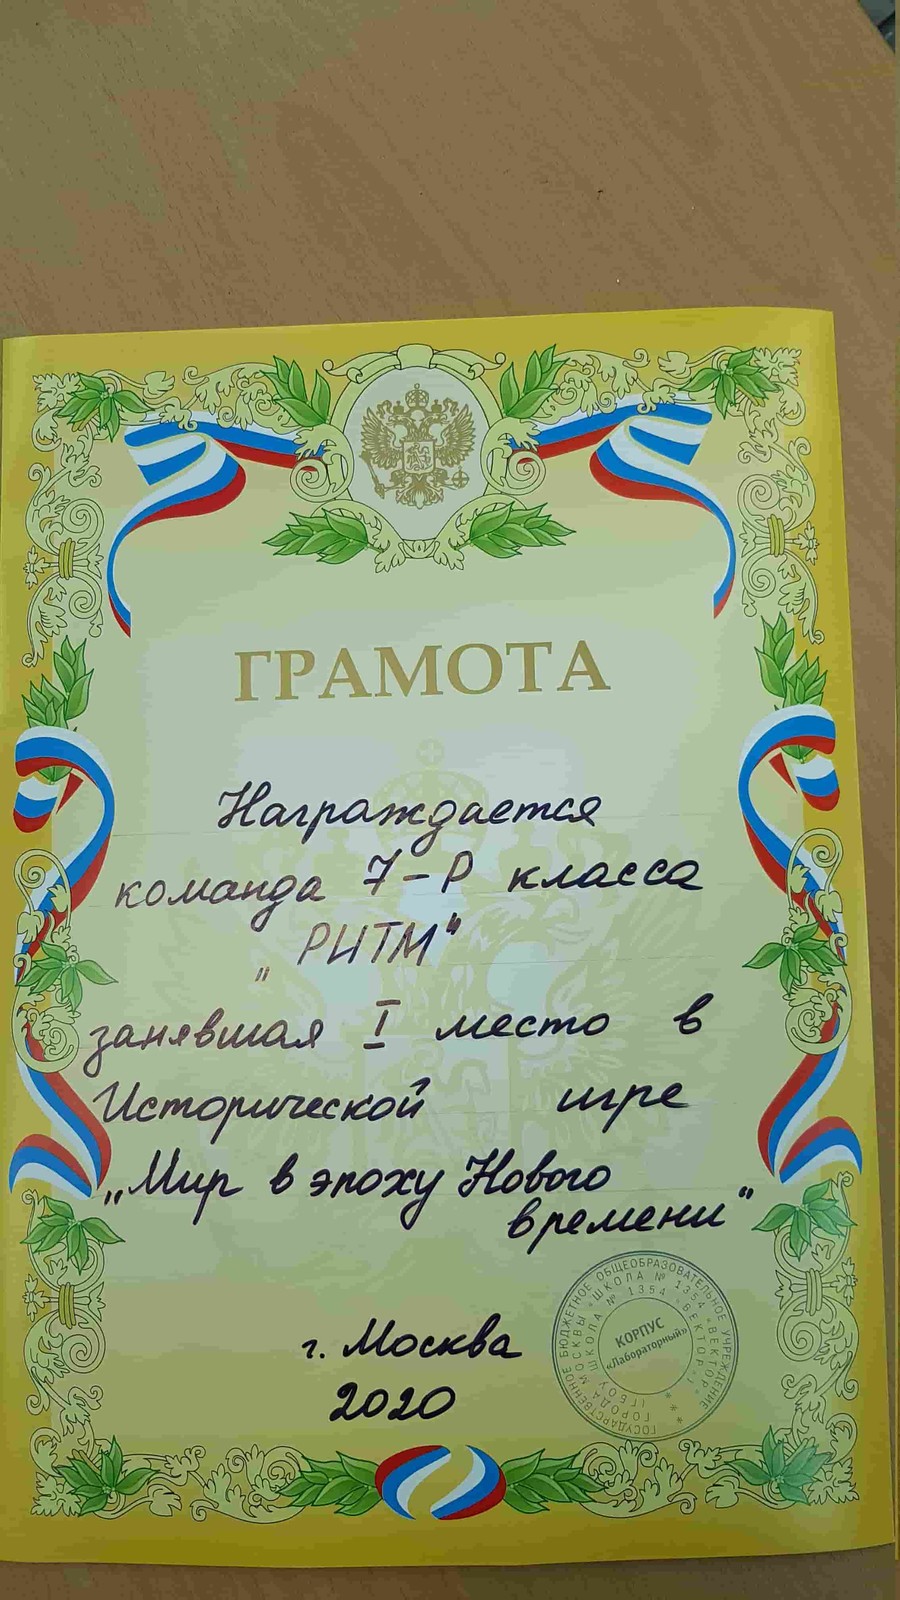 ГРАМОТА
Награждается
команда 7-Р класса
„РИТМ“
занявшая I место в
Исторической игре
„Мир в эпоху Нового
времени“
г. Москва
2020
ГОСУДАРСТВЕННОЕ БЮДЖЕТНОЕ ОБЩЕОБРАЗОВАТЕЛЬНОЕ УЧРЕЖДЕНИЕ
ГОРОДА МОСКВЫ «ШКОЛА № 1354 «ВЕКТОР»
(ГБОУ ШКОЛА № 1354 «ВЕКТОР»)
КОРПУС
«Лабораторный»